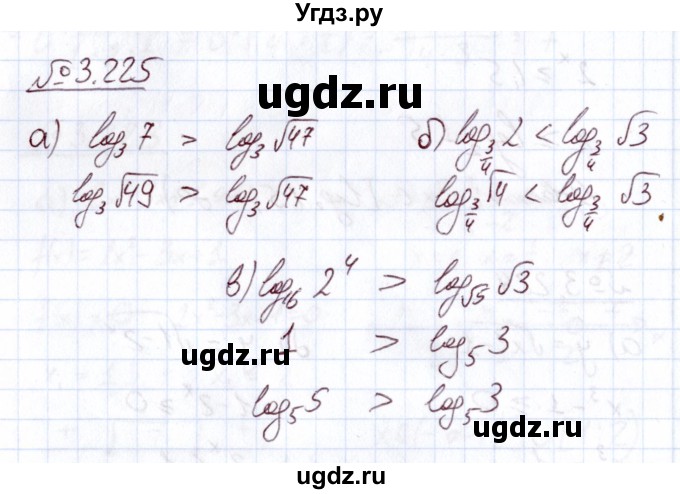 Угдз.ру
№3.225
ugdz.ru
а) log₃ 7 > log₃ √47 б) log_{3/4} 2 < log_{3/4} √3
log₃ √49 > log₃ √47 log_{3/4} √4 < log_{3/4} √3.
в) log₁₆ 2⁴ > log_{√5} √3
ugdz.ru
1 > log₅ 3
log₅ 5 > log₅ 3
ugdz.ru
ugdz.ru